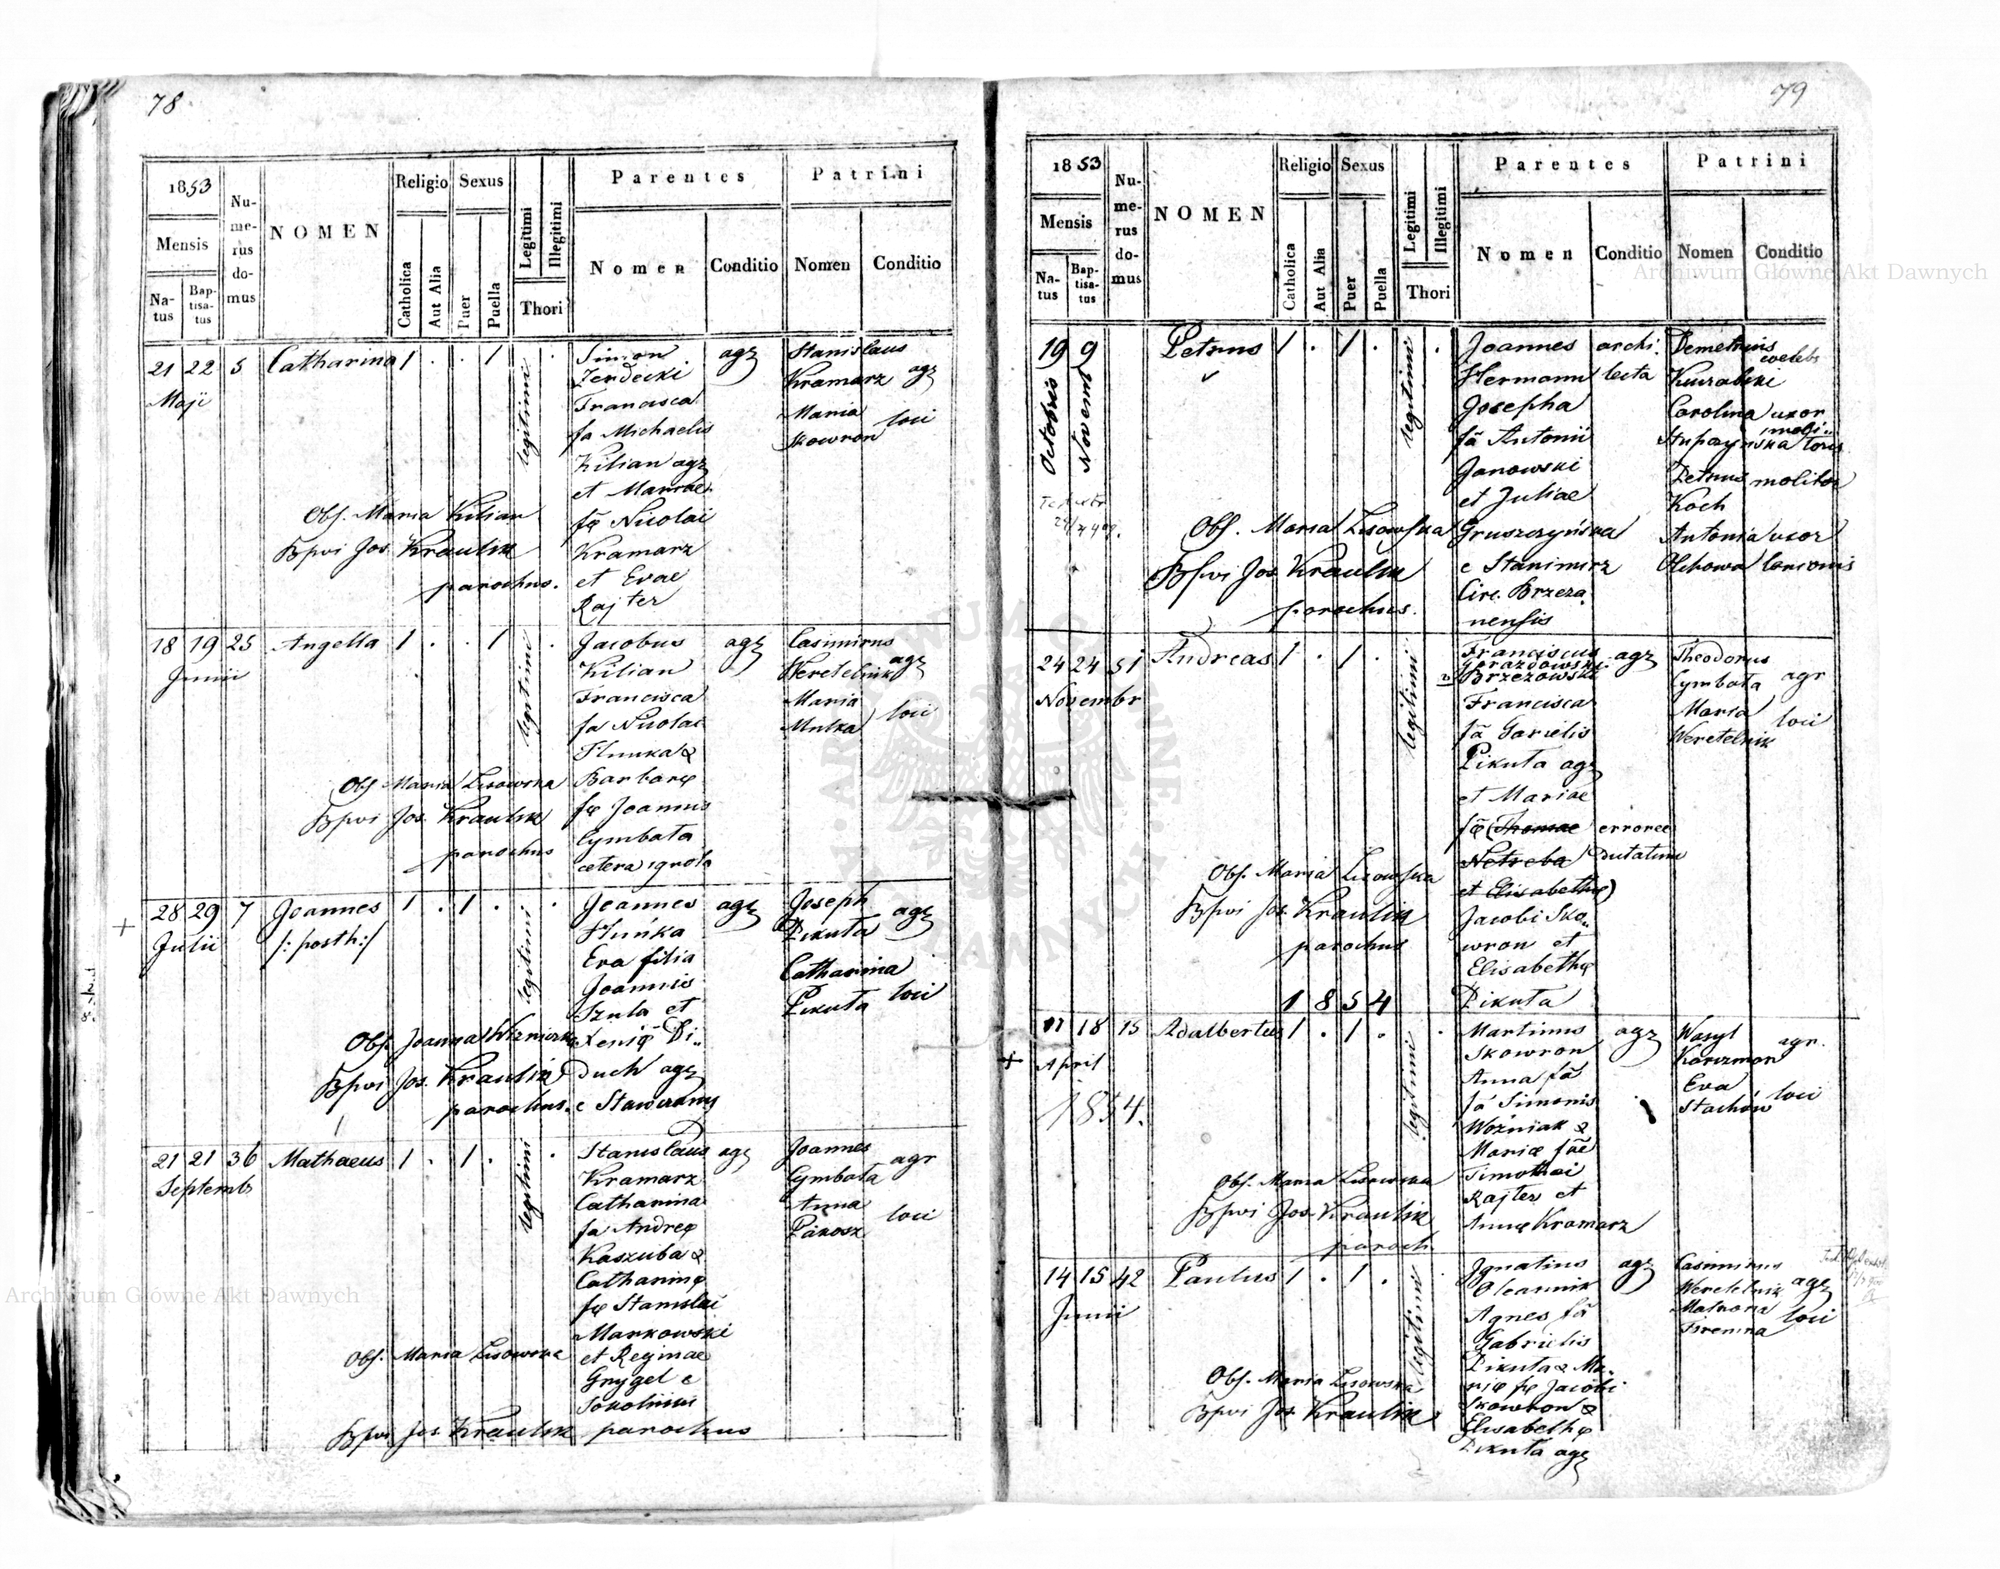 78
1853
Mensis
Na-
tus
Bap-
tisa-
tus
Nu-
me-
rus
do-
mus
NOMEN
Religio
Catholica
Aut Alia
Sexus
Puer
Puella
Legitimi
Illegitimi
Thori
Parentes
Nomen
Conditio
Patrini
Nomen
Conditio
21 22 5 Catharina 1 . . 1 .
Maji
legitimi
Simon agr
Zerdecki
Francisca
fa Michaelis
Kilian agr
et Mariae
fę Nicolai
Kramarz
et Evae
Rajter
Stanislaus
Kramarz agr
Maria
Skowron loci
Obs. Maria Kilian
Bpvi Jos. Kraulik
parochus.
18 19 25 Angella 1 . . 1 .
Junii
legitimi
Jacobus agr
Kilian
Francisca
fa Nicolai
Hunka &
Barbarę
fę Joannis
Cymbata
cetera ignota
Casimirus
Weretelnik agr
Maria
Mulka loci
Obs Maria Lisowska
Bpvi Jos. Kraulik
parochus
28 29 7 Joannes 1 . 1 . .
Julii
/: posth :/
legitimi
Joannes agr
Hunka
Eva filia
Joannis
Szula et
Xenię Di..
duch agr
e Stawczany
Joseph
Pikuta agr
Catharina
Pikuta loci
Obs. Joanna Wozniak
Bpvi Jos. Kraulik
parochus.
21 21 36 Mathaeus 1 . 1 . .
Septemb
legitimi
Stanislaus agr
Kramarz
Catharina
fa Andreę
Kaszuba &
Catharinę
fę Stanislai
Markowski
et Reginae
Grygel e
Sokolniki
Joannes
Cymbata agr
Anna
Pakosz loci
Obs. Maria Lisowska
Bpvi Jos. Kraulik parochus
79
1853
Mensis
Na-
tus
Bap-
tisa-
tus
Nu-
me-
rus
do-
mus
NOMEN
Religio
Catholica
Aut Alia
Sexus
Puer
Puella
Legitimi
Illegitimi
Thori
Parentes
Nomen
Conditio
Patrini
Nomen
Conditio
19 9 Petrus 1 . 1 . .
Octobris
Novemb
legitimi
Joannes archi
Hermann tecta
Josepha
fa Antonii
Janowski
et Juliae
Gruszczyńska
e Stanimirz
Circ. Brzeza
nensis
Demetrius
Kuzabski
Carolina uxor
Petrus molitor
Koch
Antonia uxor
Obs. Maria Lisowska
Bpvi Jos. Kraulik
parochus.
24 24 51 Andreas 1 . 1 .
Novembr
legitimi
Franciscus agr
Gorazdowski
Brzezowski
Francisca
fa Garielis
Pikuta agr
et Mariae
fę (Thomae errore
Netreba) Dutatum
et Elisabethę)
Jacobi Sko..
wron et
Elisabethę
Pikuta
Theodorus
Cymbata agr
Maria
Weretelnik loci
Obs. Maria Lisowska
Bpvi Jos. Kraulik
parochus
1854
17 18 15 Adalbertus 1 . 1 . .
April
1854.
legitimi
Martinus agr
Skowron
Anna fa
fa Simonis
Wozniak &
Marię fae
Timothei
Rajter et
Annę Kramarz
Wasyl
Korczman agr.
Eva
Stachów loci
Obs. Maria Lisowska
Bpvi Jos. Kraulik
paroch.
14 15 42 Paulus 1 . 1 . .
Junii
legitimi
Ignatius agr
Oleannik
Agnes fa
Gabrielis
Pikuta & Ma..
rię fę Jacobi
Skowron &
Elisabethę
Pikuta agr
Casimirus
Weretelnik agr
Matrona
Firemna loci
Obs. Maria Lisowska
Bpvi Jos. Kraulik
Archiwum Główne Akt Dawnych
Archiwum Główne Akt Dawnych